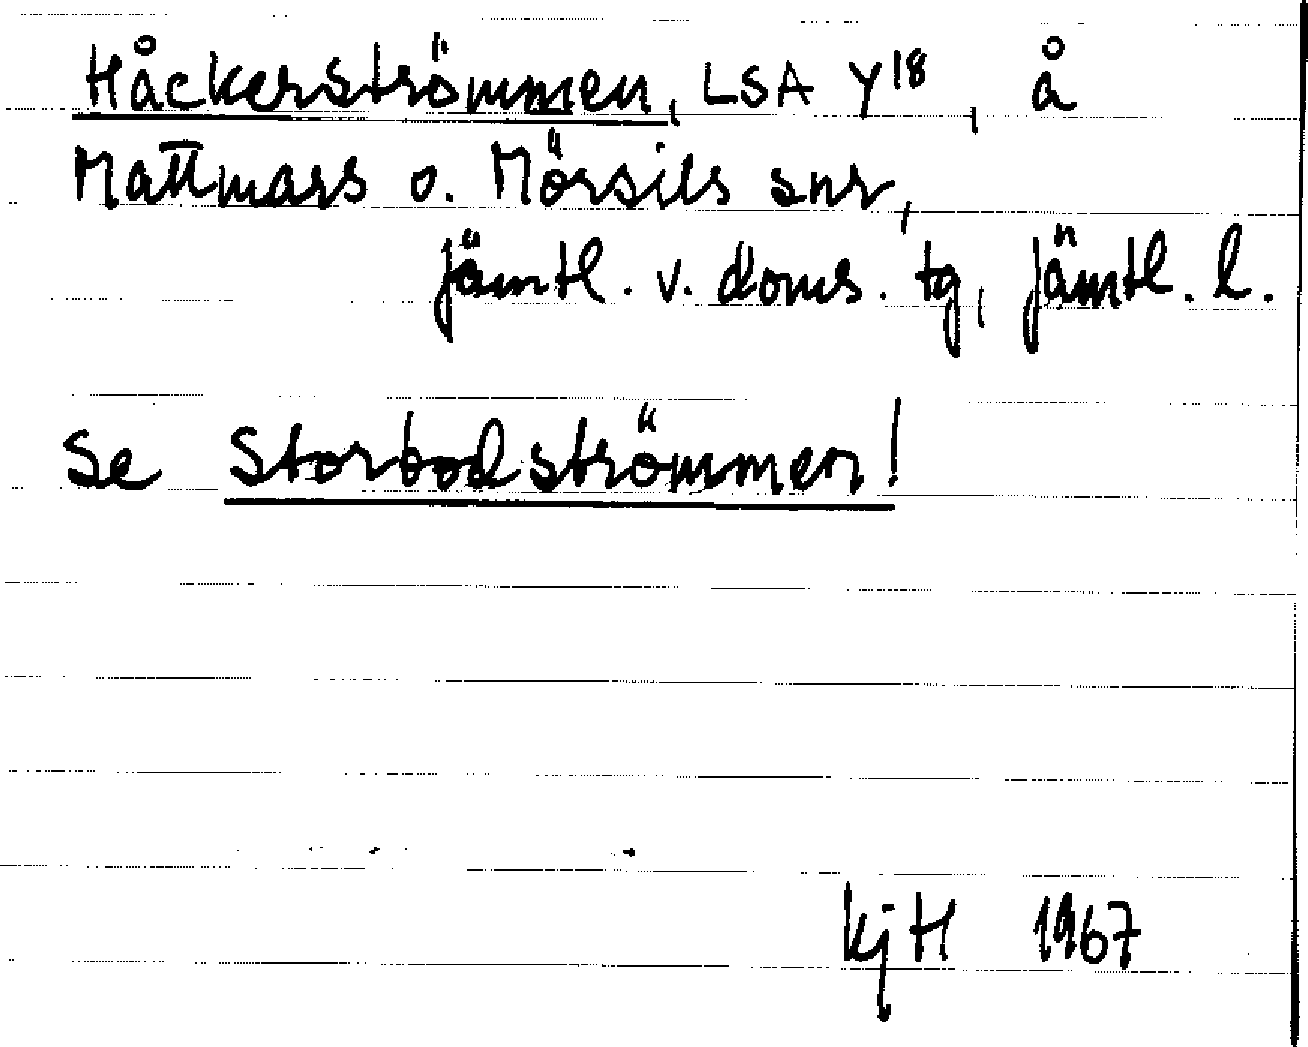 Håckerströmmen, LSA Y18, å
Mattmars o. Mörsils snr,
Jämtl. v. doms. tg, Jämtl. l.
Se Storbodströmmen!
KjH 1967